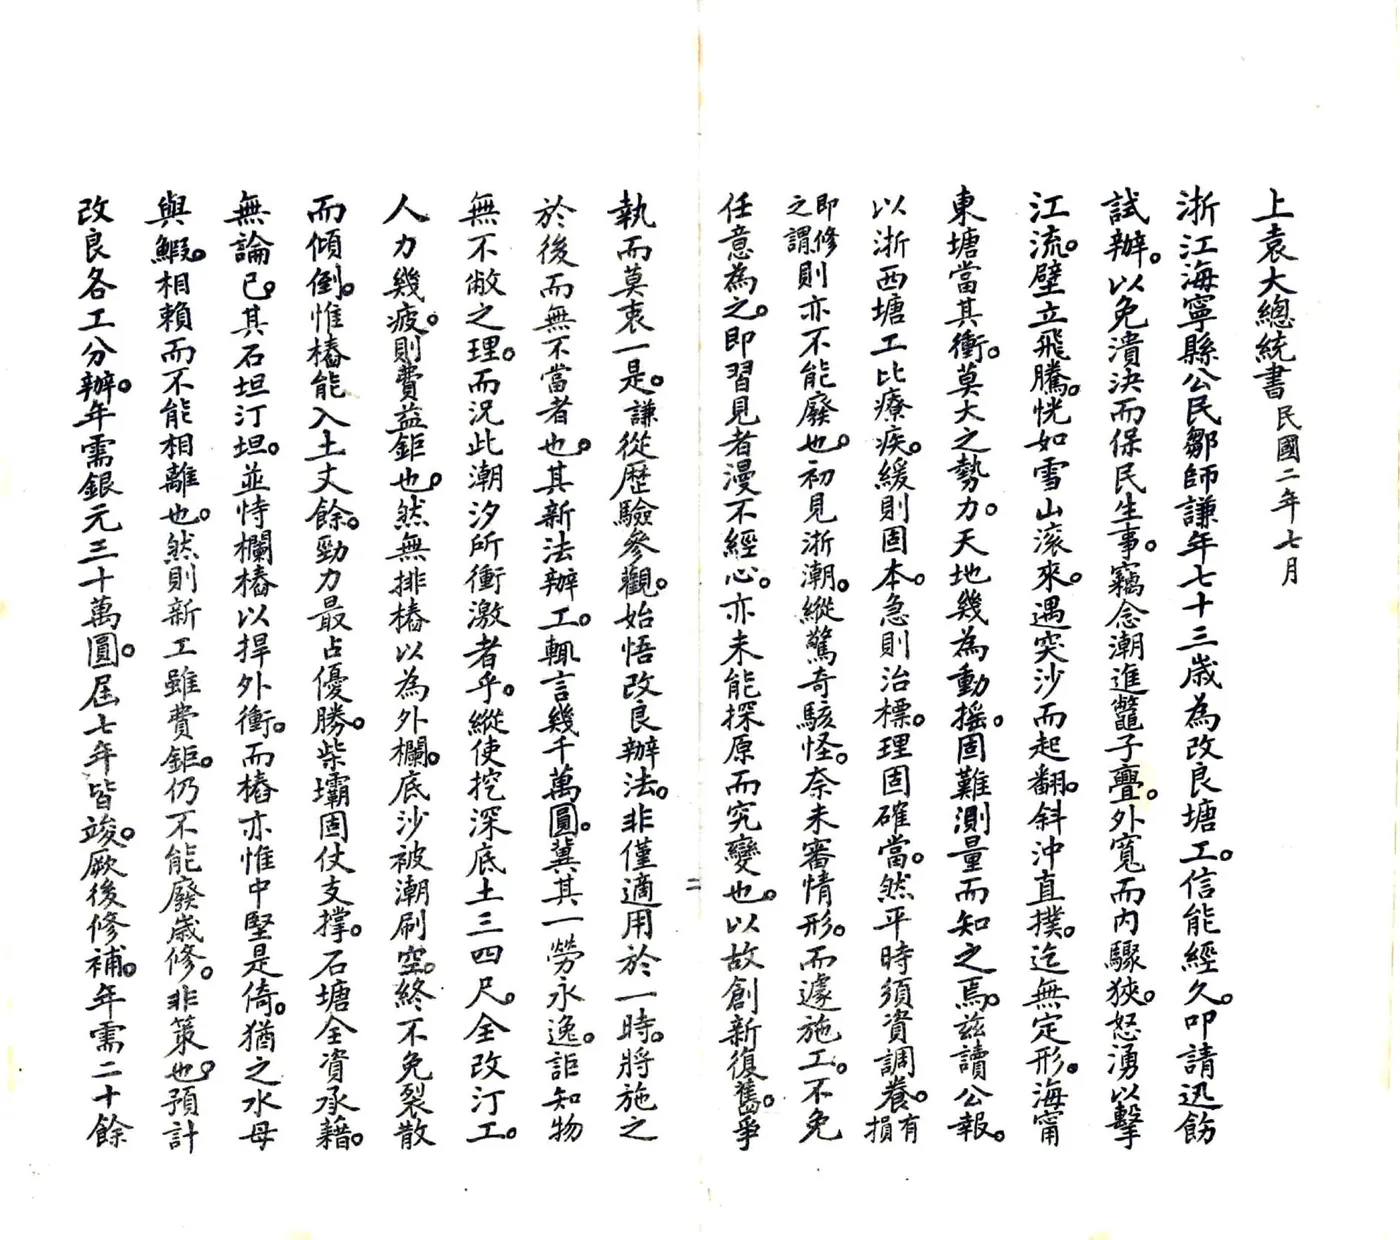 上袁大總統書民國二年七月
浙江海寧縣公民鄒師謙年七十三歲為改良塘工。信能經久。叩請迅飭
試辦。以免潰決而保民生事。竊念潮進鼈子亹。外寬而內驟狹。怒湧以擊
江流。壁立飛騰。恍如雪山滾來。遇突沙而起翻。斜沖直撲。迄無定形。海甯
東塘當其衝。莫大之勢力。天地幾為動搖。固難測量而知之焉。茲讀公報。
以浙西塘工比療疾。緩則固本。急則治標。理固確當。然平時須資調養。有損
即修之謂則亦不能廢也。初見浙潮。縱驚奇駭怪。奈未審情形。而遽施工。不免
任意為之。即習見者漫不經心。亦未能探原而究變也。以故創新復舊。爭
二
執而莫衷一是。謙從歷驗參觀。始悟改良辦法。非僅適用於一時。將施之
於後而無不當者也。其新法辦工。輒言幾千萬圓。冀其一勞永逸。詎知物
無不敝之理。而況此潮汐所衝激者乎。縱使挖深底土三四尺。全改汀工。
人力幾疲。則費益鉅也。然無排樁以為外欄。底沙被潮刷空。終不免裂散
而傾倒。惟樁能入土丈餘。勁力最占優勝。柴壩固仗支撐。石塘全資承藉。
無論已。其石坦汀坦。並恃欄樁以捍外衝。而樁亦惟中堅是倚。猶之水母
與鰕。相賴而不能相離也。然則新工雖費鉅。仍不能廢歲修。非策也。預計
改良各工分辦。年需銀元三十萬圓。屆七年皆竣。厥後修補。年需二十餘